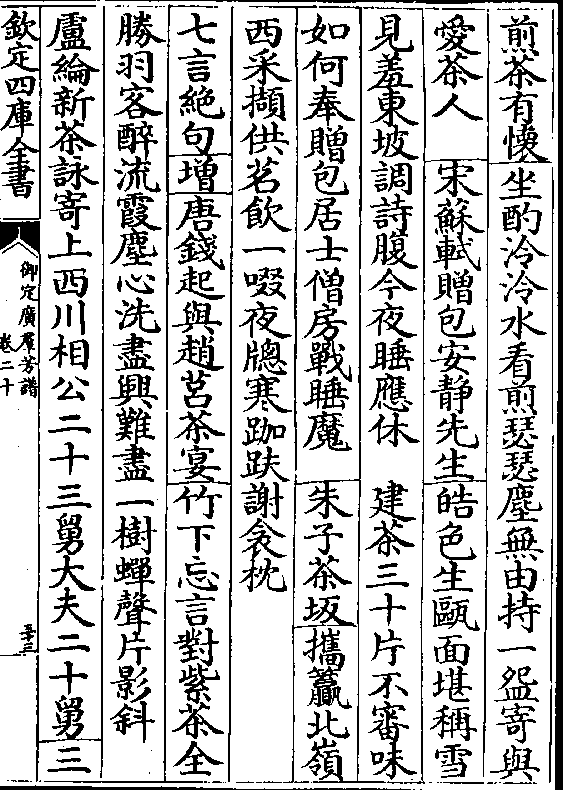 煎茶有懷坐酌泠泠水看煎瑟瑟塵無由持一盌寄與
愛茶人　宋蘇軾贈包安靜先生皓色生甌面堪稱雪
見羞東坡調詩腹今夜睡應休　建茶三十片不審味
如何奉贈包居士僧房戰睡魔　朱子茶坂攜籯北嶺
西采擷供茗飲一啜夜牕寒跏趺謝衾枕
七言絶句增唐錢起與趙莒茶宴竹下忘言對紫茶全
勝羽客醉流霞塵心洗盡興難盡一樹蟬聲片影斜
盧綸新茶詠寄上西川相公二十三舅大夫二十舅三
欽定四庫全書
御定廣羣芳譜
卷二十